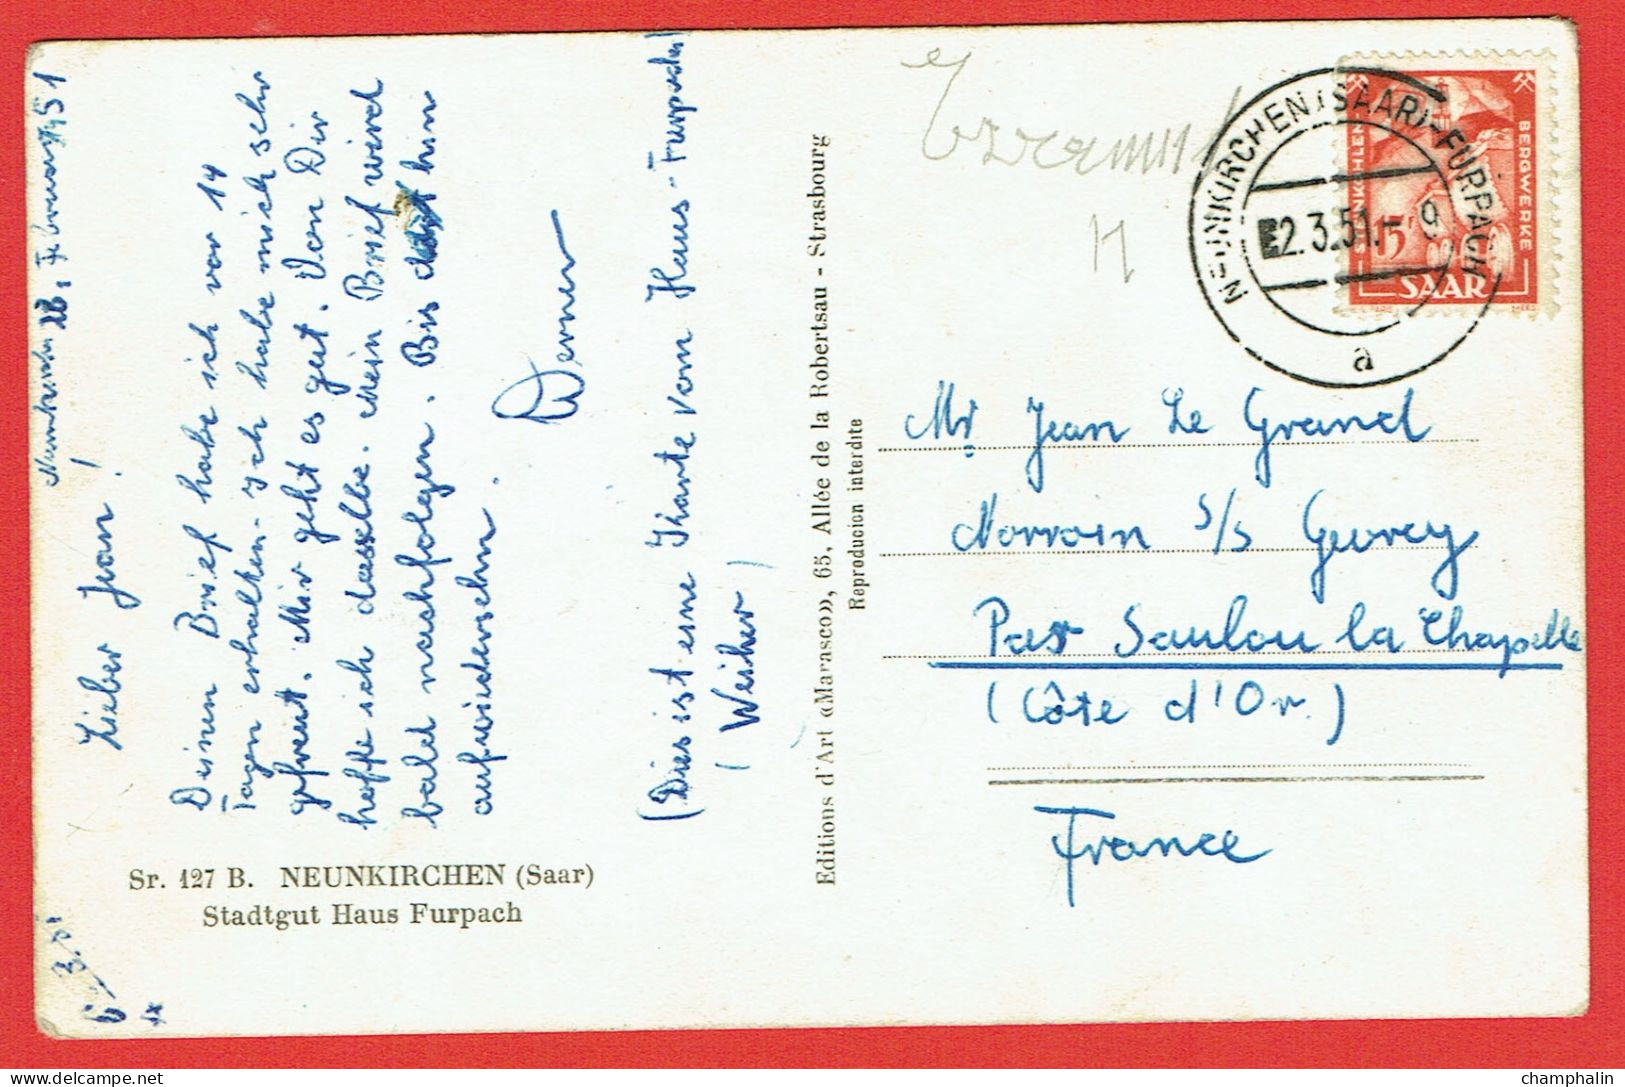 Neunkirchen 28, Februar 1951
Lieber Jean!
Deinen Brief habe ich vor 14
Tagen erhalten. Ich habe mich sehr
gefreut. Mir geht es gut. Von Dir
hoffe ich dasselbe. Mein Brief wird
bald nachfolgen. Bis dahin
aufwiedersehn.
Werner
(Dies ist eine Kharte vom Haus-Furpacher
(Weiher)
Sr. 127 B. NEUNKIRCHEN (Saar)
Stadtgut Haus Furpach
Editions d'Art «Marasco», 65, Allée de la Robertsau - Strasbourg
Reproducion interdite
NEUNKIRCHEN (SAAR)-FURPACH
2.3.51.-9
a
STEINKOHLEN
BERGWERKE
15F
SAAR
Mr Jean Le Grand
s/s Gevrey
Par Saulou la Chapelle
(Côte d'Or.)
France